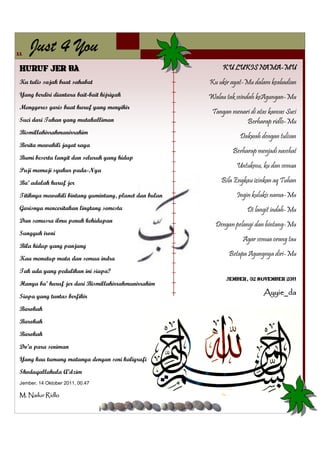 11.
Just 4 You
HURUF JER BA
Ku tulis sajak buat sahabat
Yang berdiri diantara bait-bait hijriyah
Menggores garis buat huruf yang menyihir
Suci dari Tuhan yang mutakalliman
Bismillahirrahmanirrahim
Berita mewakili jagat raya
Bumi beserta langit dan seluruh yang hidup
Puji memuji syukur pada-Nya
Ba' adalah huruf jer
Titiknya mewakili bintang gumintang, planet dan bulan
Garisnya menceritakan lingtang semesta
Dan samudra ilmu penuh kehidupan
Sungguh ironi
Bila hidup yang panjang
Kau menutup mata dan semua indra
Tak ada yang pedulikan ini siapa?
Hanya ba' huruf jer dari Bismillahirrahmanirrahim
Siapa yang tuntas berfikir
Barokah
Barokah
Barokah
Do'a para seniman
Yang kau tamung matanya dengan seni kaligrafi
Shodaqallahula A'dzim
Jember, 14 Oktober 2011, 00.47
M. Nashir Ridlo
KU LUKIS NAMA-MU
Ku ukir ayat-Mu dalam keabadian
Walau tak seindah keAgungan-Mu
Tangan menari di atas kanvas Suci
Berharap ridlo-Mu
Dakwah dengan tulisan
Berharap menjadi nasehat
Untukmu, ku dan semua
Bila Engkau izinkan aq Tuhan
Ingin kulukis nama-Mu
Di langit indah-Mu
Dengan pelangi dan bintang-Mu
Agar semua orang tau
Betapa Agungnya diri-Mu
JEMBER, 02 NOVEMBER 2011
Ayyie_da
رب
بسم الله الرحمن الرحيم